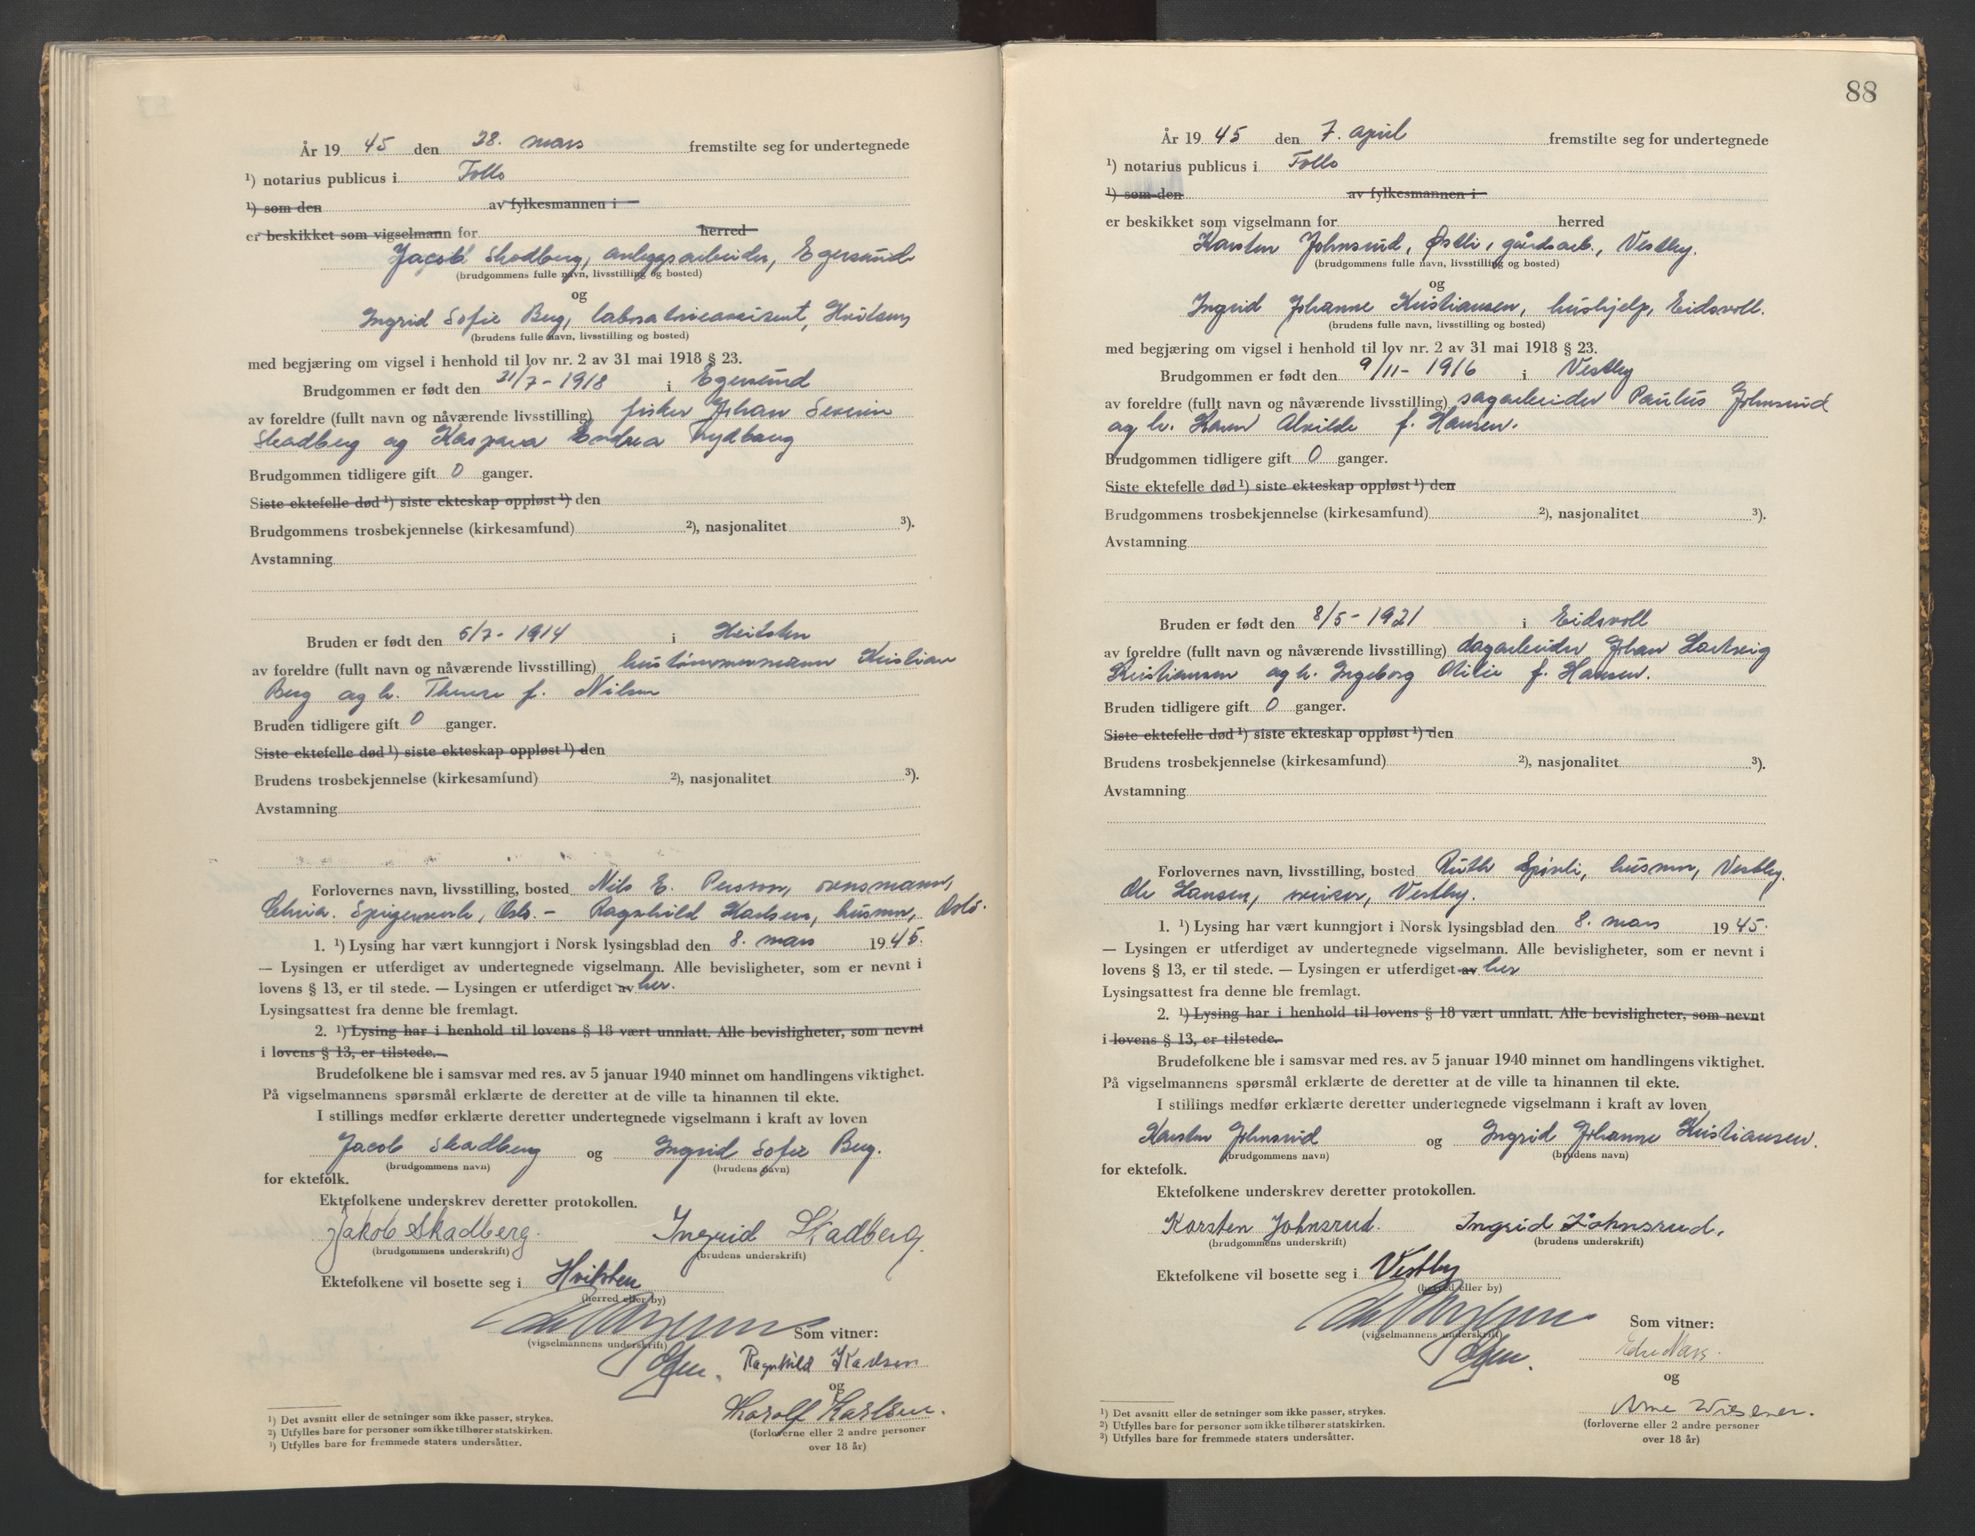 År 19 45 den 28. mars fremstilte seg for undertegnede
¹) notarius publicus i Follo
¹) som den av fylkesmannen i
er beskikket som vigselmann for herred
Jacob Skadberg, anleggsarbeider, Egersund
(brudgommens fulle navn, livsstilling og bosted)
og
Ingrid Sofie Berg, laboratorieassisent, Hvitsten
(brudens fulle navn, livsstilling og bosted)
med begjæring om vigsel i henhold til lov nr. 2 av 31 mai 1918 § 23.
Brudgommen er født den 21/7 - 1918 i Egersund
av foreldre (fullt navn og nåværende livsstilling) fisker Johan Severin
Skadberg og Kaspara Endrea
Brudgommen tidligere gift 0 ganger.
Siste ektefelle død ¹) siste ekteskap oppløst ¹) den
Brudgommens trosbekjennelse (kirkesamfund) ²), nasjonalitet ³).
Avstamning
Bruden er født den 6/7 - 1914 i Hvitsten
av foreldre (fullt navn og nåværende livsstilling) hustømmermann Kristian
Berg og h. Therese f. Nilsen
Bruden tidligere gift 0 ganger.
Siste ektefelle død ¹) siste ekteskap oppløst ¹) den
Brudens trosbekjennelse (kirkesamfund) ²), nasjonalitet ³).
Avstamning
Forlovernes navn, livsstilling, bosted Nils E. Persson, ovnsmann,
Chria. Spigerverk, Oslo. - Ragnhild Karlsen, husmor, Oslo.
1. ¹) Lysing har vært kunngjort i Norsk lysingsblad den 8. mars 1945.
— Lysingen er utferdiget av undertegnede vigselmann. Alle bevisligheter, som er nevnt i
lovens § 13, er til stede. — Lysingen er utferdiget av her.
Lysingsattest fra denne ble fremlagt.
2. ¹) Lysing har i henhold til lovens § 18 vært unnlatt. Alle bevisligheter, som nevnt
i lovens § 13, er tilstede.—
Brudefolkene ble i samsvar med res. av 5 januar 1940 minnet om handlingens viktighet.
På vigselmannens spørsmål erklærte de deretter at de ville ta hinannen til ekte.
I stillings medfør erklærte deretter undertegnede vigselmann i kraft av loven
Jacob Skadberg og Ingrid Sofie Berg.
(brudgommens navn) (brudens navn)
for ektefolk.
Ektefolkene underskrev deretter protokollen.
Jakob Skadberg. Ingrid Skadberg.
(brudgommens underskrift) (brudens underskrift)
Ektefolkene vil bosette seg i Hvitsten
(herred eller by)
Som vitner:
(vigselmannens underskrift)
Ragnhild Karlsen
og
Harolf Karlsen.
(forloverne eller 2 andre personer
over 18 år)
¹) Det avsnitt eller de setninger som ikke passer, strykes.
²) Utfylles bare for personer som ikke tilhører statskirken.
³) Utfylles bare for fremmede staters undersåtter.
88
År 19 45 den 7. april fremstilte seg for undertegnede
¹) notarius publicus i Follo
¹) som den av fylkesmannen i
er beskikket som vigselmann for herred
Karsten Johnsrud, Østli, gårdsarb., Vestby.
(brudgommens fulle navn, livsstilling og bosted)
og
Ingrid Johanne Kristiansen, hushjelp, Eidsvoll.
(brudens fulle navn, livsstilling og bosted)
med begjæring om vigsel i henhold til lov nr. 2 av 31 mai 1918 § 23.
Brudgommen er født den 9/11 - 1916 i Vestby
av foreldre (fullt navn og nåværende livsstilling) sagarbeider Paulus Johnsrud
og h. Karen Alvilde f. Hansen.
Brudgommen tidligere gift 0 ganger.
Siste ektefelle død ¹) siste ekteskap oppløst ¹) den
Brudgommens trosbekjennelse (kirkesamfund) ²), nasjonalitet ³).
Avstamning
Bruden er født den 8/5 - 1921 i Eidsvoll
av foreldre (fullt navn og nåværende livsstilling) dagarbeider Johan Hartvig
Kristiansen og h. Ingeborg Otilie f. Hansen.
Bruden tidligere gift 0 ganger.
Siste ektefelle død ¹) siste ekteskap oppløst ¹) den
Brudens trosbekjennelse (kirkesamfund) ²), nasjonalitet ³).
Avstamning
Forlovernes navn, livsstilling, bosted Ruth husmor, Vestby.
Ole Hansen, sveiser, Vestby.
1. ¹) Lysing har vært kunngjort i Norsk lysingsblad den 8. mars 1945.
— Lysingen er utferdiget av undertegnede vigselmann. Alle bevisligheter, som er nevnt i
lovens § 13, er til stede. — Lysingen er utferdiget av her
Lysingsattest fra denne ble fremlagt.
2. ¹) Lysing har i henhold til lovens § 18 vært unnlatt. Alle bevisligheter, som nevnt
i lovens § 13, er tilstede.—
Brudefolkene ble i samsvar med res. av 5 januar 1940 minnet om handlingens viktighet.
På vigselmannens spørsmål erklærte de deretter at de ville ta hinannen til ekte.
I stillings medfør erklærte deretter undertegnede vigselmann i kraft av loven
Karsten Johnsrud og Ingrid Johanne Kristiansen.
(brudgommens navn) (brudens navn)
for ektefolk.
Ektefolkene underskrev deretter protokollen.
Karsten Johnsrud. Ingrid Johnsrud.
(brudgommens underskrift) (brudens underskrift)
Ektefolkene vil bosette seg i Vestby
(herred eller by)
Som vitner:
(vigselmannens underskrift)
og
Arne Wiesener.
(forloverne eller 2 andre personer
over 18 år)
¹) Det avsnitt eller de setninger som ikke passer, strykes.
²) Utfylles bare for personer som ikke tilhører statskirken.
³) Utfylles bare for fremmede staters undersåtter.